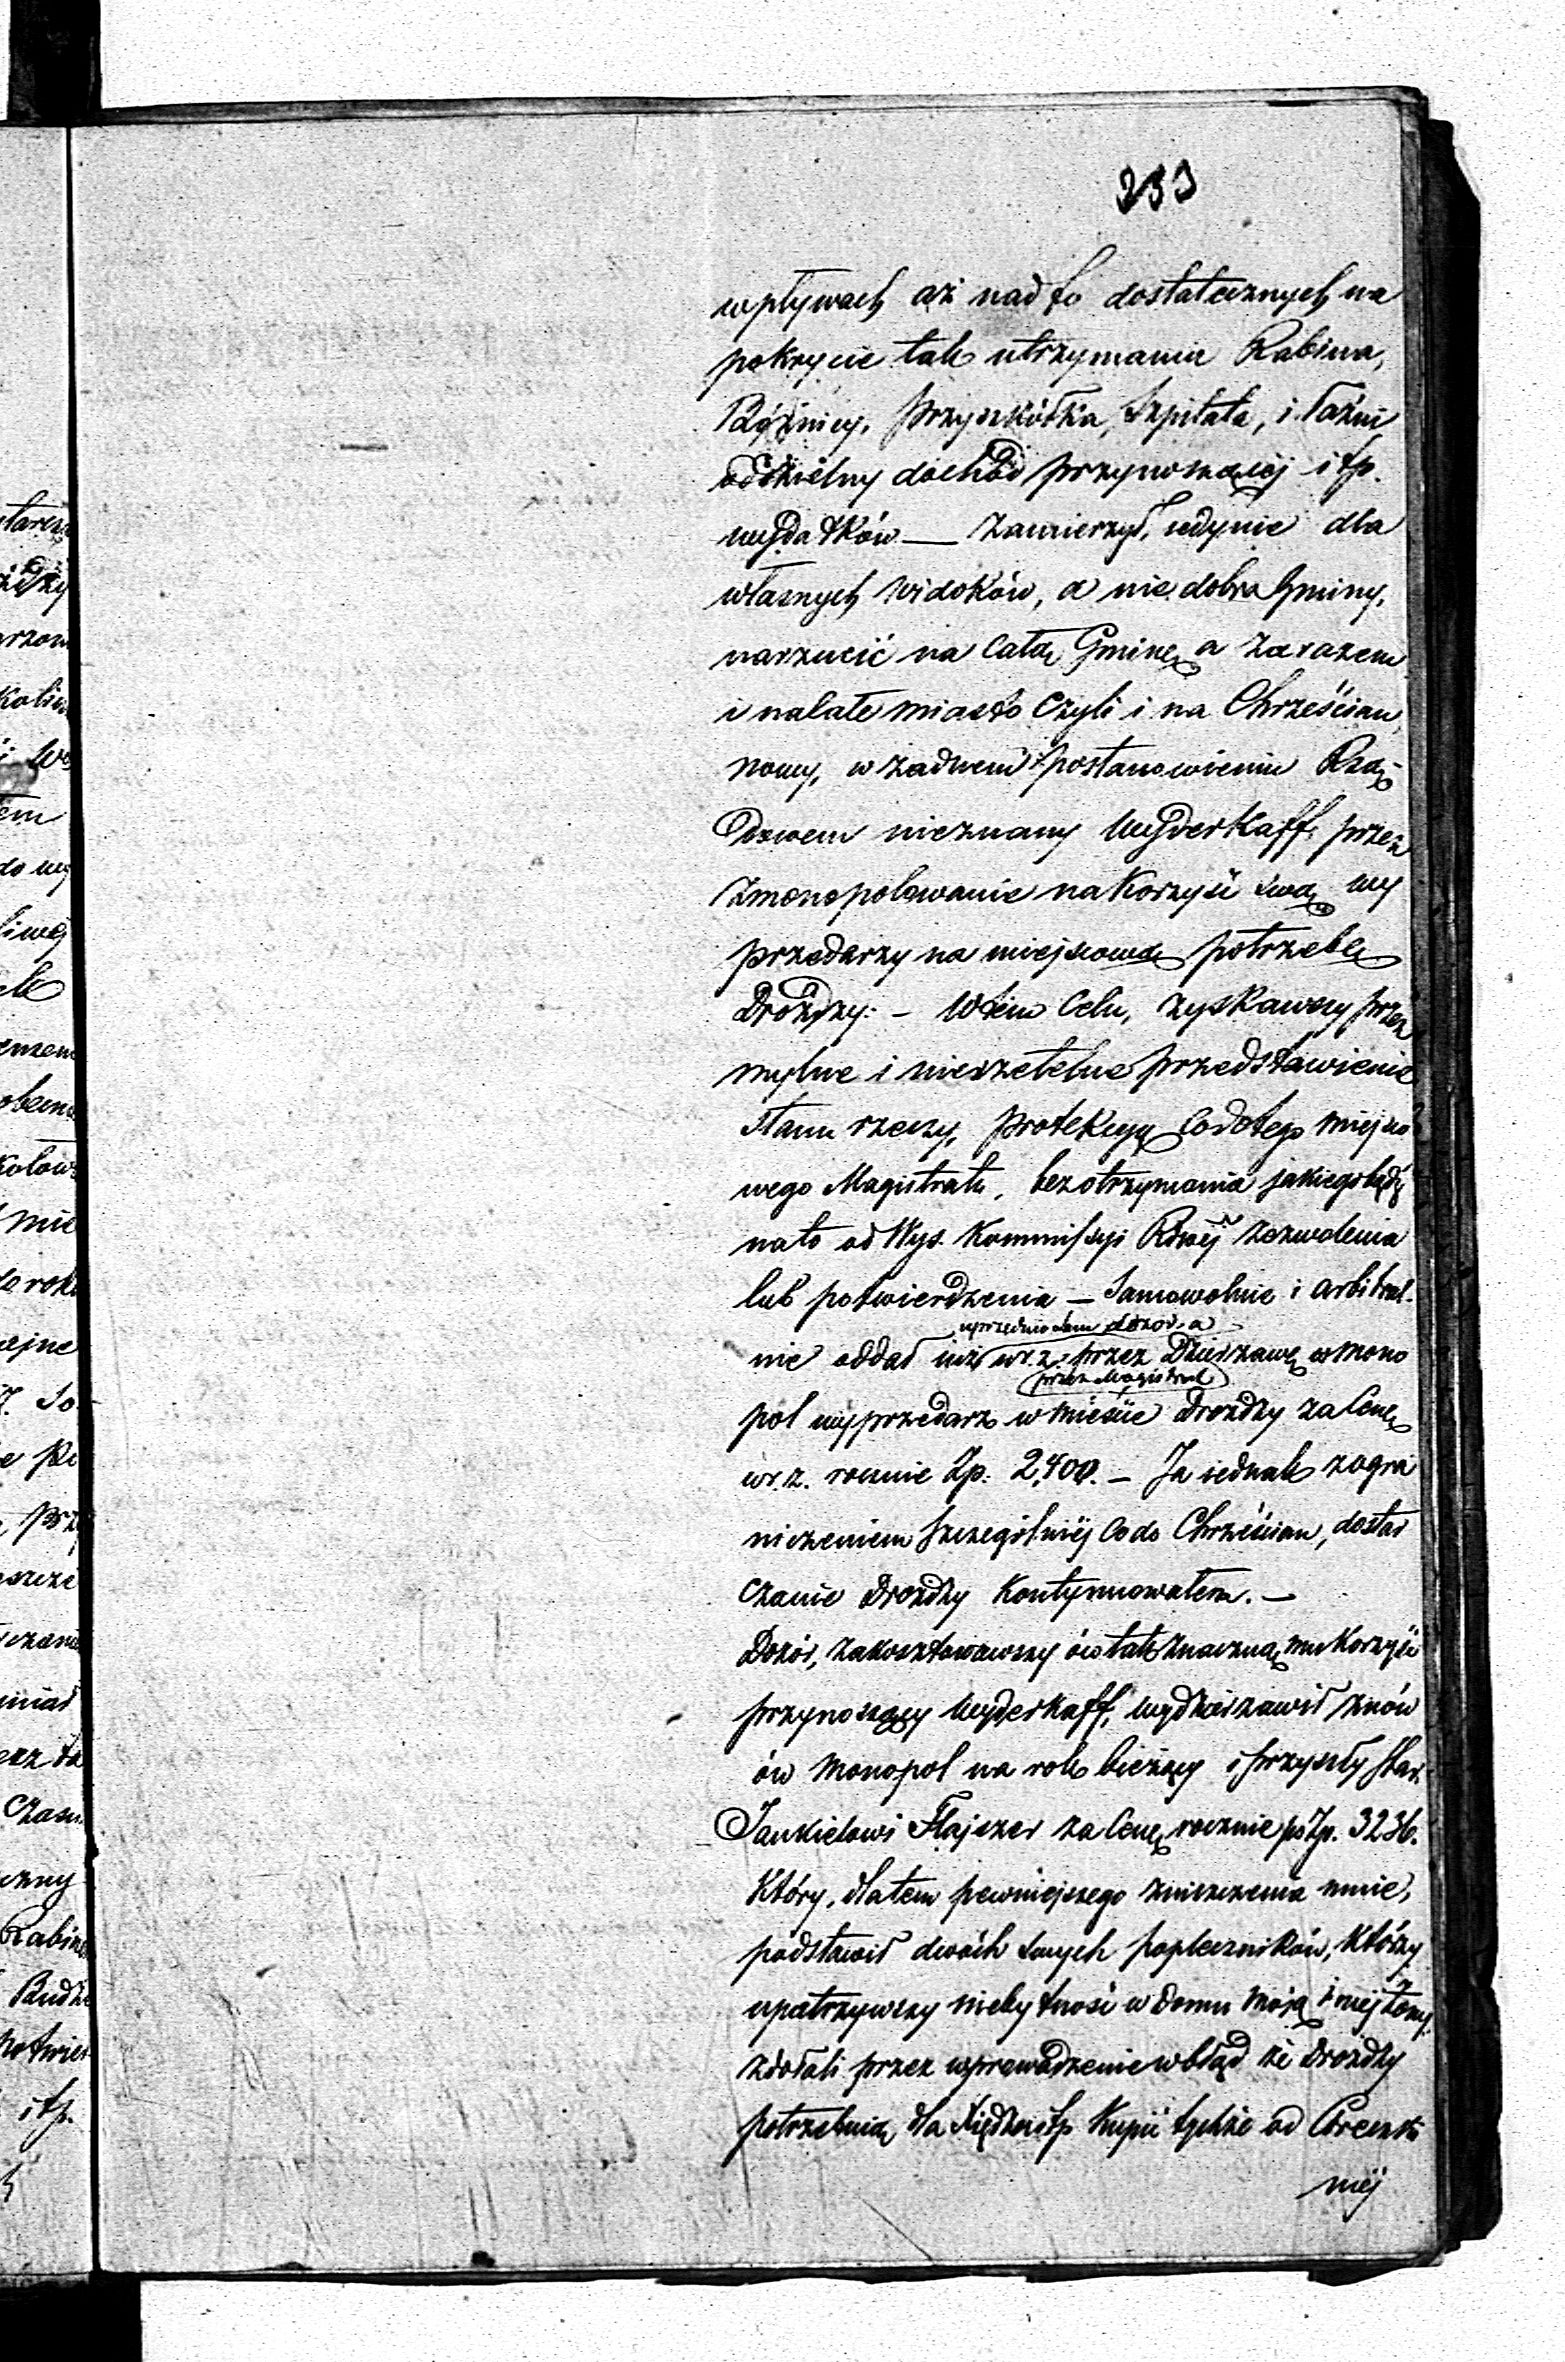 233
wpływach aż nadto dostatecznych na
pokrycie tak utrzymania Rabina,
Bóżnicy, przyszkółka, Szpitala, i Łaźni
oddzielny dochód przynoszącej itp.
wydatków — zamierzył, jedynie dla
własnych widoków, a nie dobra Gminy,
narzucić na całą Gminę a zarazem
i nacałe miasto czyli i na Chrześcian,
nowy, w żadnem postanowieniu Rzą-
dowem nieznany Wyderkaff, przez
zmonopolowanie na Korzyść swą wy
przedarzy na miejscową potrzebę
Drożdży. – W tem Celu, zyskawszy przez
mylne i nierzetelne przedstawienie
Stanu rzeczy, protekcyę codotego miejsco
wego Magistratu, bez otrzymania jakiegobądź
nato od Wys. Kommissyi Rdwej zezwolenia
lub potwierdzenia – Samowolnie i arbitral-
uprzednio dozór a
nie oddał już wr. z. przez Dzierżawę w mono
przez Magistrat
pol wyprzedarz w mieście Drożdży za Cenę
wr. z. rocznie Zp. 2,400. – Ja jednak z ogra
niczeniem szczególniej co do Chrześcian, dostar
czanie Drożdży Kontynuowałem. –
Dozór, zakosztowawszy ów tak znaczną mu Korzyść
przynoszący Wyderkaff, wydzierżawił znów
ów Monopol na rok bieżący i przyszły Star.
Jankielowi Flajszer za Cenę rocznie po Zp. 3236.
Który, dla tem pewniejszego zniszczenia mnie,
podstawił dwóch swych popleczników, Którzy
upatrzywszy niebytność w Domu moją i mej żony
zdołali przez wprowadzenie w błąd że Drożdży
potrzebują dla Księdza itp Kupić tychże od
niej